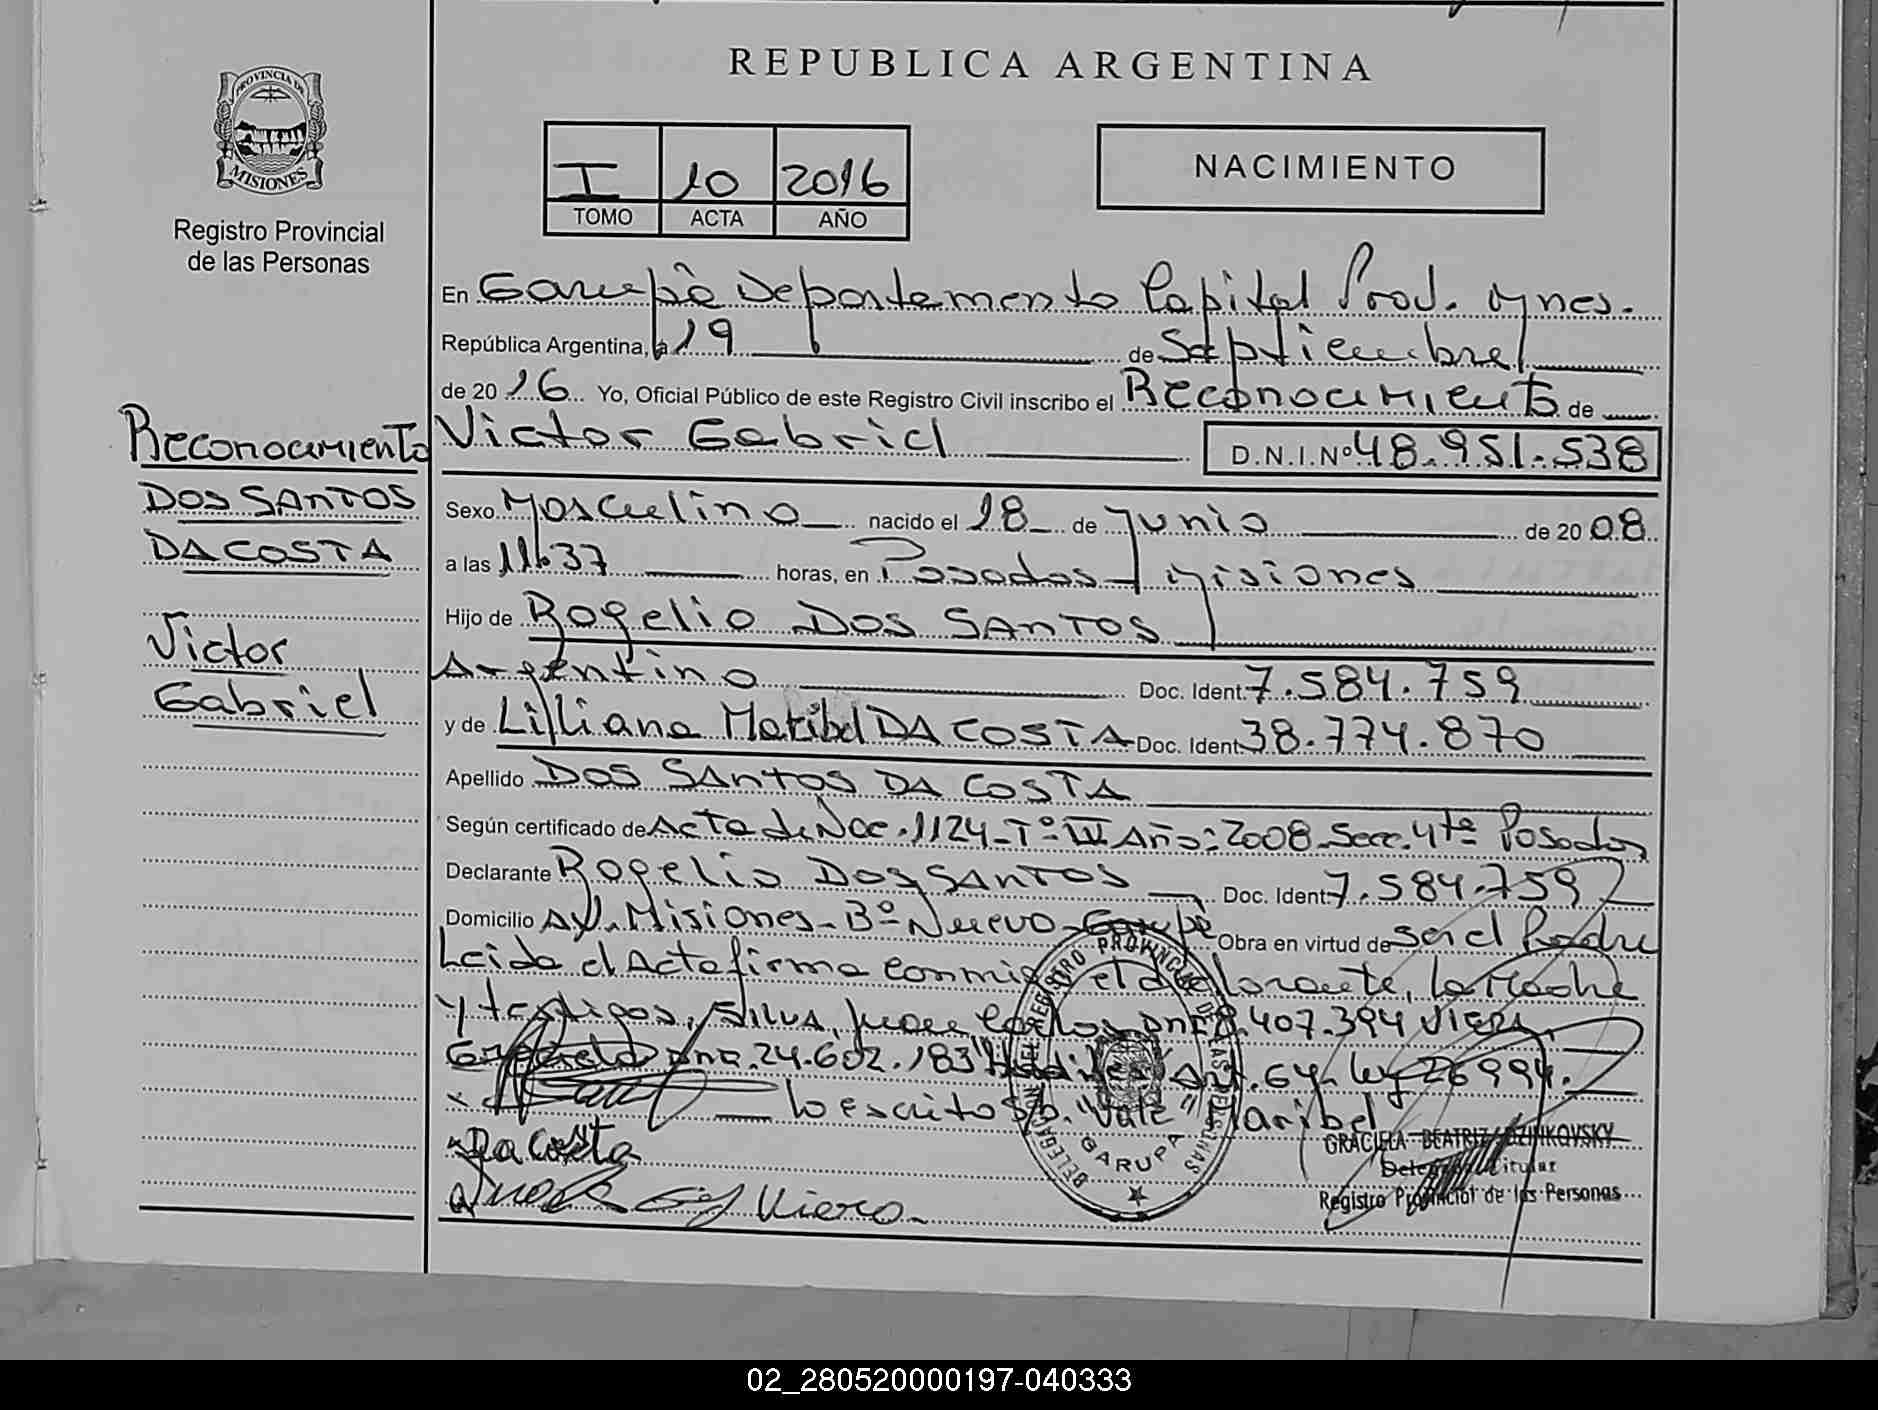 REPUBLICA ARGENTINA
PROVINCIA DE
MISIONES
Registro Provincial
de las Personas
I 10 2016
TOMO ACTA AÑO
NACIMIENTO
En Garupà Departamento Capital Prov. Mnes.
República Argentina, a 19 de Septiembre
de 2016 Yo, Oficial Público de este Registro Civil inscribo el Reconocimiento de
Victor Gabriel D.N.I.Nº 48.951.538
Reconocimiento
DOS SANTOS
DA COSTA
Victor
Gabriel
Sexo Masculino nacido el 18 de Junio de 2008
a las 11.37 horas, en Posadas Misiones
Hijo de Rogelio DOS SANTOS
Argentino Doc. Ident. 7.584.759
y de Lilliana Maribel DA COSTA Doc. Ident. 38.774.870
Apellido DOS SANTOS DA COSTA
Según certificado de Acta de Nac. 1124-Tº III Año: 2008 Secc. 4ta Posadas
Declarante Rogelio DOS SANTOS Doc. Ident. 7.584.759
Domicilio Av. Misiones - Bº Nuevo - Garupè Obra en virtud de ser el Padre
Leida el Acta firma conmigo el declarante, la Madre
y testigos, SILVA, Juan Carlos DNI 8.407.394
DNI. 24.602.183 Art. 64 Ley 26994.
lo escrito s/b. "Vale" Maribel
Da Costa
Viera
DELEGACION DEL REGISTRO PROVINCIAL DE LAS PERSONAS
GARUPA
GRACIELA BEATRIZ DZINKOVSKY
Delegada Titular
Registro Provincial de las Personas
02_280520000197-040333